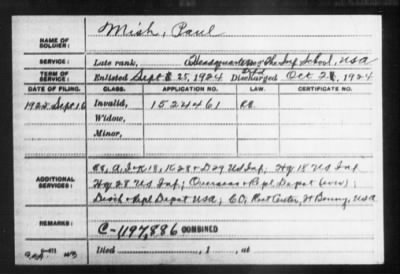 NAME OF SOLDIER: Mish, Paul
SERVICE: Late rank, Headquarters The Inf School, USA
TERM OF SERVICE: Enlisted Sept 25, 1924 Discharged Oct 2, 1924
DATE OF FILING. CLASS. APPLICATION NO. LAW. CERTIFICATE NO.
1925 Sept 16 Invalid, 1524461
Widow,
Minor,
ADDITIONAL SERVICES: A, I & K 18, 16, 28 & D 29 US Inf; Hq 18 US Inf
Hq 28 US Inf; Overseas & Repl Depot
Disch & Repl Depot USA; CO, Rec Center, Ft Benning, USA
REMARKS: C-1197,886 COMBINED
Died , 1 , at